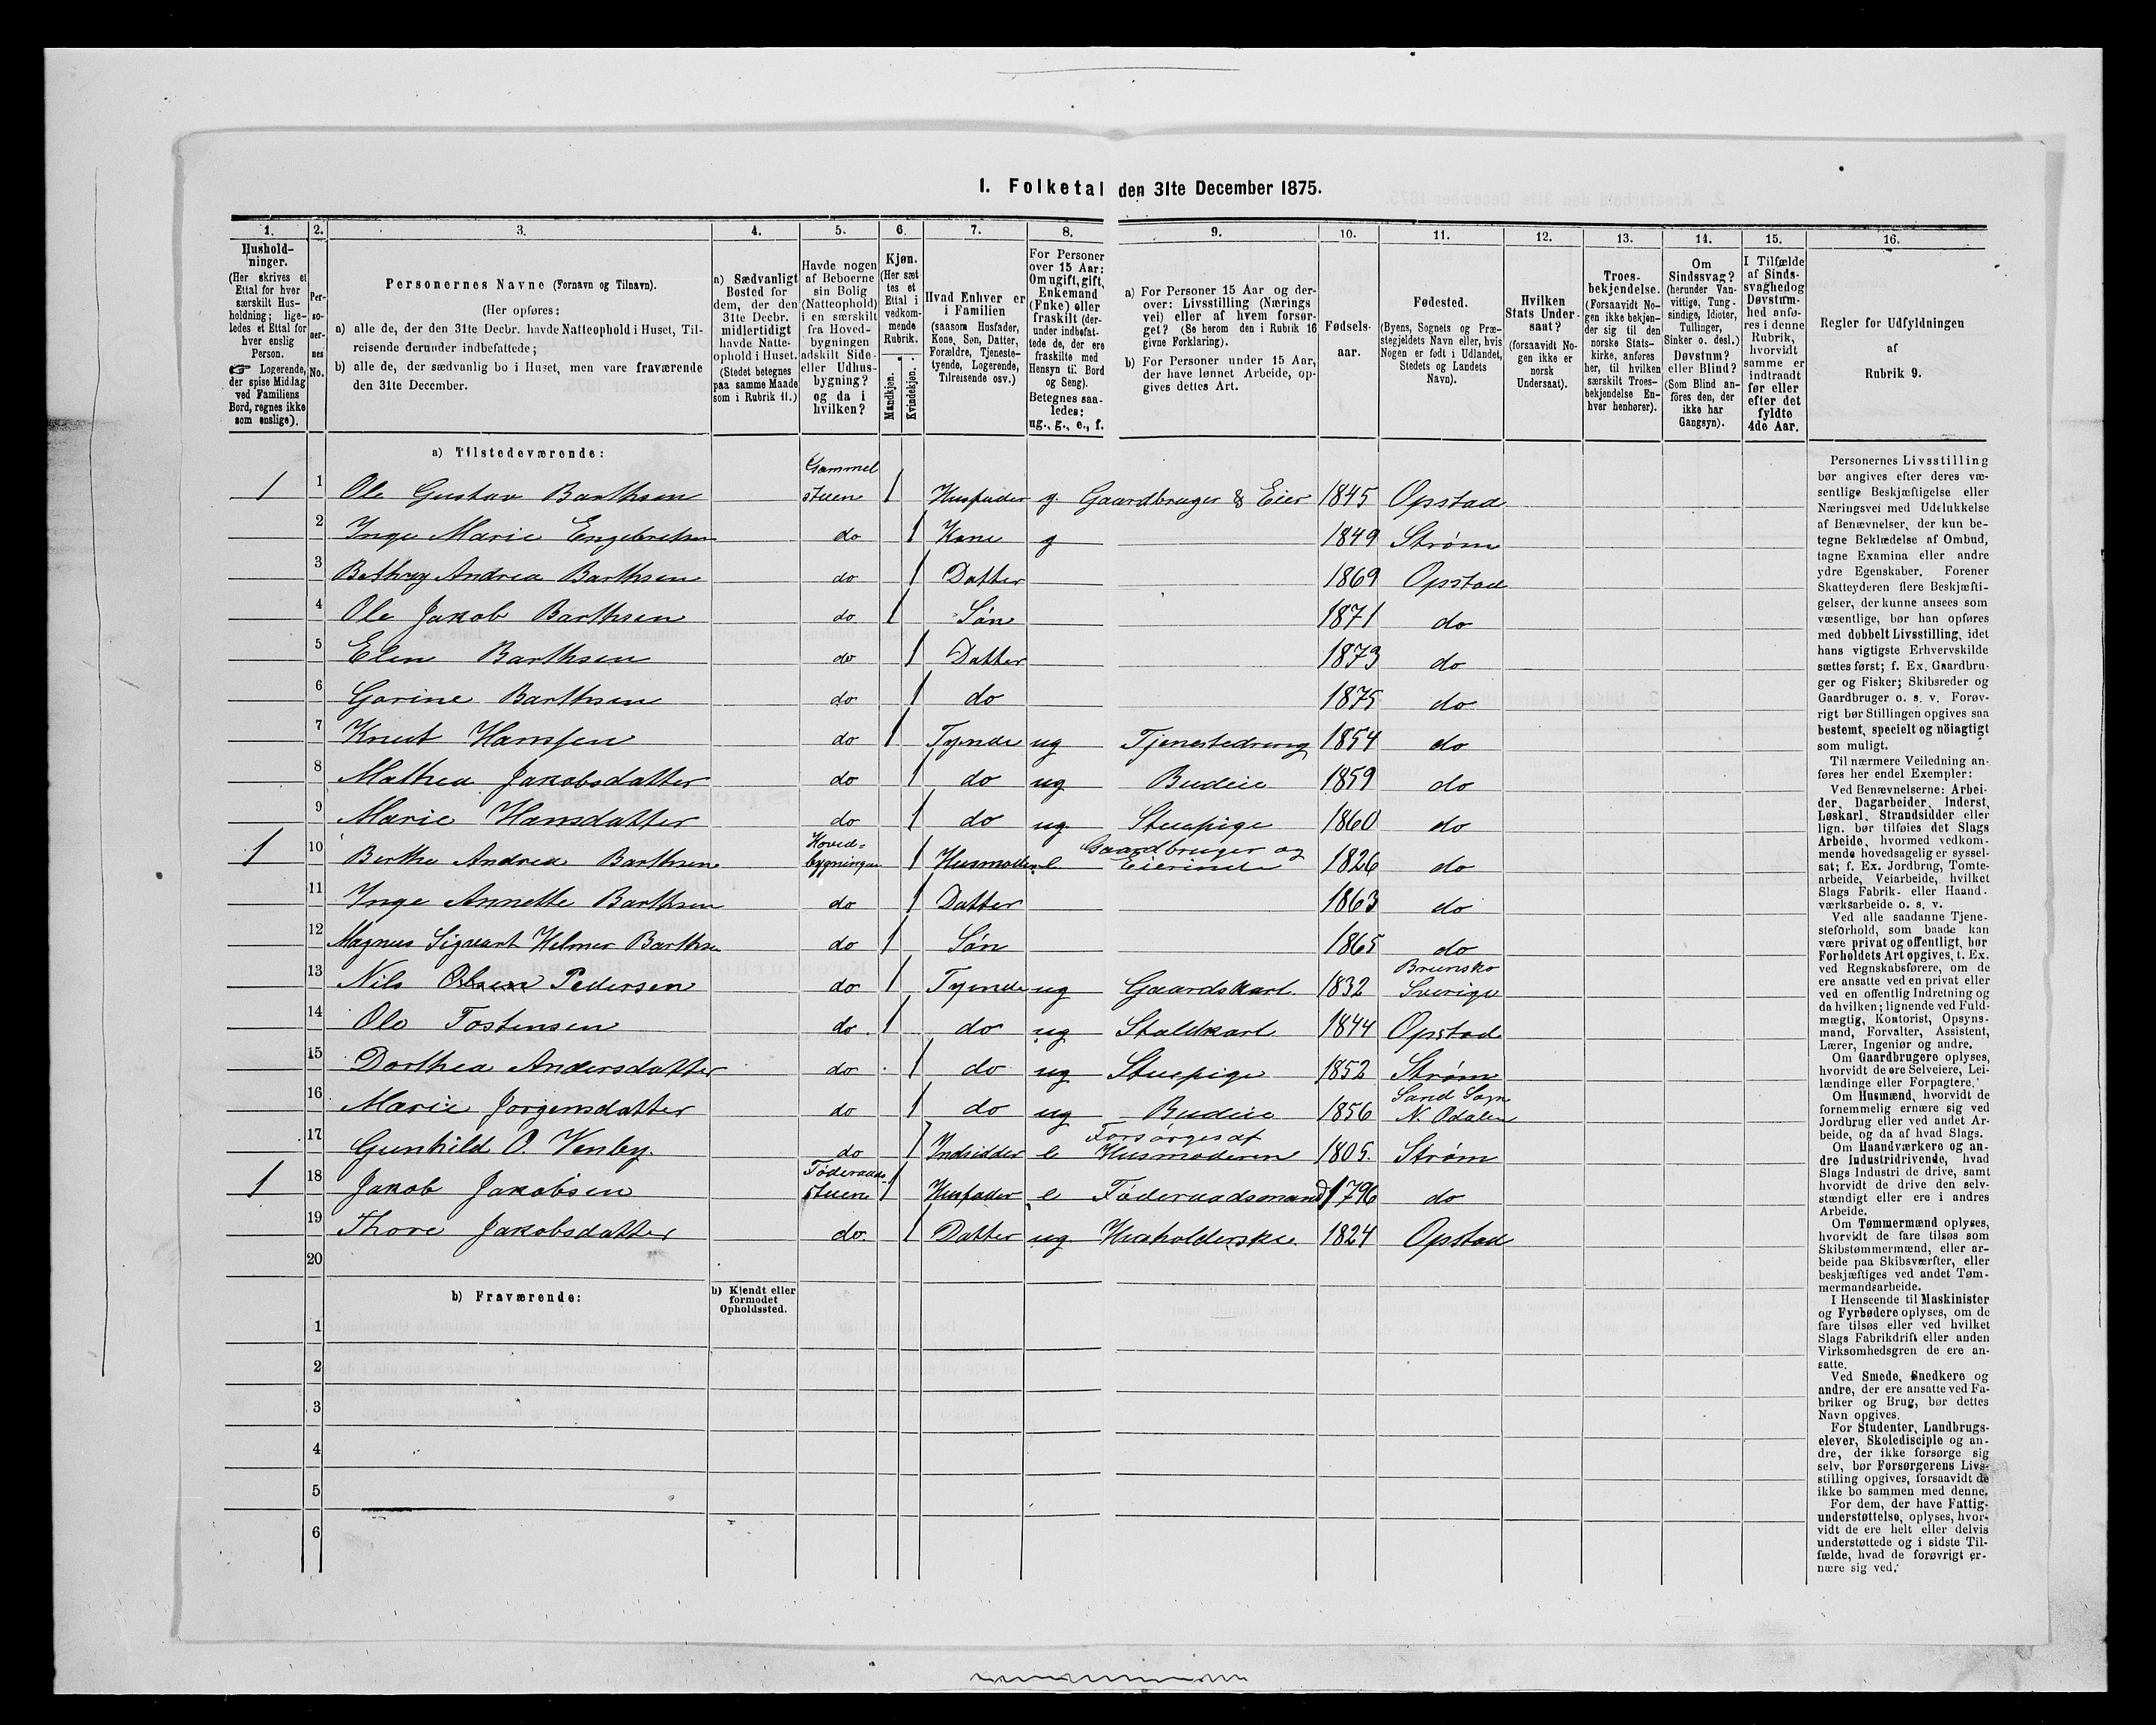 I. Folketal den 31te December 1875.
1. 2. 3. 4. 5. 6. 7. 8. 9. 10. 11. 12. 13. 14. 15. 16.
Hushold-
ninger.
(Her skrives et
Ettal for hver
særskilt Hus-
holdning; lige-
ledes et Ettal for
hver enslig
Person.
☞ Logerende,
der spise Middag
ved Familiens
Bord, regnes ikke
som enslige).
Per-
so-
ner-
nes
No.
Personernes Navne (Fornavn og Tilnavn).
(Her opføres:
a) alle de, der den 31te Decbr. havde Natteophold i Huset, Til-
reisende derunder indbefattede;
b) alle de, der sædvanlig bo i Huset, men vare fraværende
den 31te December.
a) Sædvanligt
Bosted for
dem, der den
31te Decbr.
midlertidigt
havde Natte-
ophold i Huset.
(Stedet betegnes
paa samme Maade
som i Rubrik 11.)
Havde nogen
af Beboerne
sin Bolig
(Natteophold)
i en særskilt
fra Hoved-
bygningen
adskilt Side-
eller Udhus-
bygning?
og da i
hvilken?
Kjøn.
(Her sæt
tes et
Ettal i
vedkom-
mende
Rubrik.
Mandkjøn.
Kvindekjøn.
Hvad Enhver er
i Familien
(saasom Husfader,
Kone, Søn, Datter,
Forældre, Tjeneste-
tyende, Logerende,
Tilreisende osv.)
For Personer
over 15 Aar:
Om ugift, gift,
Enkemand
(Enke) eller
fraskilt (der-
under indbefat-
tede de, der ere
fraskilte med
Hensyn til Bord
og Seng).
Betegnes saa-
ledes:
ug., g., e., f.
a) For Personer 15 Aar og der-
over: Livsstilling (Nærings
vei) eller af hvem forsør-
get? (Se herom den i Rubrik 16
givne Forklaring).
b) For Personer under 15 Aar,
der have lønnet Arbeide, op-
gives dettes Art.
Fødsels-
aar.
Fødested.
(Byens, Sognets og Præ-
stegjeldets Navn eller, hvis
Nogen er født i Udlandet,
Stedets og Landets
Navn).
Hvilken
Stats Under-
saat?
(forsaavidt No-
gen ikke er
norsk
Undersaat).
Troes-
bekjendelse.
(Forsaavidt No-
gen ikke bekjen-
der sig til den
norske Stats-
kirke, anføres
her, til hvilken
særskilt Troes-
bekjendelse En-
hver henhører).
Om
Sindssvag?
(herunder Van-
vittige, Tung-
sindige, Idioter,
Tullinger,
Sinker o. desl.)
Døvstum?
eller Blind?
(Som Blind an-
føres den, der
ikke har
Gangsyn).
I Tilfælde
af Sinds-
svaghed og
Døvstum-
hed anfø-
res i denne
Rubrik,
hvorvidt
samme er
indtraadt
før eller
efter det
fyldte
4de Aar.
Regler for Udfyldningen
af
Rubrik 9.
a) Tilstedeværende:
1 1 Ole Gustav Barthsen Gammel stuen 1 Husfader g. Gaardbruger & Eier 1845 Opstad
2 Inge Marie Engebretsen do 1 Kone g 1849 Strøm
3 Bethzey Andrea Barthsen do 1 Datter 1869 Opstad
4 Ole Jakob Barthsen do 1 Søn 1871 do
5 Elen Barthsen do 1 Datter 1873 do
6 Gorine Barthsen do 1 do 1875 do
7 Knut Hanssen do 1 Tyende ug Tjenestedreng 1854 do
8 Mathea Jakobsdatter do 1 do ug Budeie 1859 do
9 Marie Hansdatter do 1 do ug. Stuepige 1860 do
1 10 Berthe Andrea Barthsen Hoved= bygningen 1 Husmoder e Gaardbruger og Eierinde 1826 do
11 Inge Annette Barthsen do 1 Datter 1863 do
12 Magnus Sigvart Helmer Barthsen do 1 Søn 1865 do
13 Nils Olsen Pedersen do 1 Tyende ug Gaardskarl 1832 Brunsko Sverige
14 Ole Tostensen do 1 do ug Staldkarl 1844 Opstad
15 Dorthea Andersdatter do 1 do ug Stuepige 1852 Strøm
16 Marie Jørgensdatter do 1 do ug Budeie 1856 Sand Sogn N. Odalen
17 Gunhild O. Venby do 1 Indsidder e Forsørges af Husmoderen 1805. Strøm
1 18 Jakob Jakobsen Føderaads- stuen 1 Husfader e Føderaadsmand 1796 do
19 Thore Jakobsdatter do. 1 Datter ug. Husholderske 1824 Opstad
20
b) Fraværende:
b) Kjendt eller
formodet
Opholdssted.
1
2
3
4
5
6
Personernes Livsstilling
bør angives efter deres væ-
sentlige Beskjæftigelse eller
Næringsvei med Udelukkelse
af Benævnelser, der kun be-
tegne Beklædelse af Ombud,
tagne Examina eller andre
ydre Egenskaber. Forener
Skatteyderen flere Beskjæfti-
gelser, der kunne ansees som
væsentlige, bør han opføres
med dobbelt Livsstilling, idet
hans vigtigste Erhvervskilde
sættes først; f. Ex. Gaardbru-
ger og Fisker; Skibsreder og
Gaardbruger o. s. v. Forøv-
rigt bør Stillingen opgives saa
bestemt, specielt og nöiagtigt
som muligt.
Til nærmere Veiledning an-
føres her endel Exempler:
Ved Benævnelserne: Arbei-
der, Dagarbeider, Inderst,
Løskarl, Strandsidder eller
lign. bør tilføies det Slags
Arbeide, hvormed vedkom-
mende hovedsagelig er syssel-
sat; f. Ex. Jordbrug, Tomte-
arbeide, Veiarbeide, hvilket
Slags Fabrik- eller Haand-
værksarbeide o. s. v.
Ved alle saadanne Tjene-
steforhold, som baade kan
være privat og offentligt, bør
Forholdets Art opgives, t. Ex.
ved Regnskabsførere, om de
ere ansatte ved en privat eller
ved en offentlig Indretning og
da hvilken; lignende ved Fuld-
mægtig, Kontorist, Opsyns-
mand, Forvalter, Assistent,
Lærer, Ingeniør og andre.
Om Gaardbrugere oplyses,
hvorvidt de ere Selveiere, Lei-
lændinge eller Forpagtere.
Om Husmænd, hvorvidt de
fornemmelig ernære sig ved
Jordbrug eller ved andet Ar-
beide, og da af hvad Slags.
Om Haandværkere og an-
dre Industridrivende, hvad
Slags Industri de drive, samt
hvorvidt de drive den selv-
stændigt eller ere i andres
Arbeide.
Om Tømmermænd oplyses,
hvorvidt de fare tilsøs som
Skibstømmermænd, eller ar-
beide paa Skibsværfter, eller
beskjæftiges ved andet Tøm-
mermandsarbeide.
I Henseende til Maskinister
og Fyrbødere oplyses, om de
fare tilsøs eller ved hvilket
Slags Fabrikdrift eller anden
Virksomhedsgren de ere an-
satte.
Ved Smede, Snedkere og
andre, der ere ansatte ved Fa-
briker og Brug, bør dettes
Navn opgives.
For Studenter, Landbrugs-
elever, Skoledisciple og an-
dre, der ikke forsørge sig
selv, bør Forsørgerens Livs-
stilling opgives, forsaavidt de
ikke bo sammen med denne.
For dem, der have Fattig-
understøttelse, oplyses, hvor-
vidt de ere helt eller delvis
understøttede og i sidste Til-
fælde, hvad de forøvrigt er-
nære sig ved.